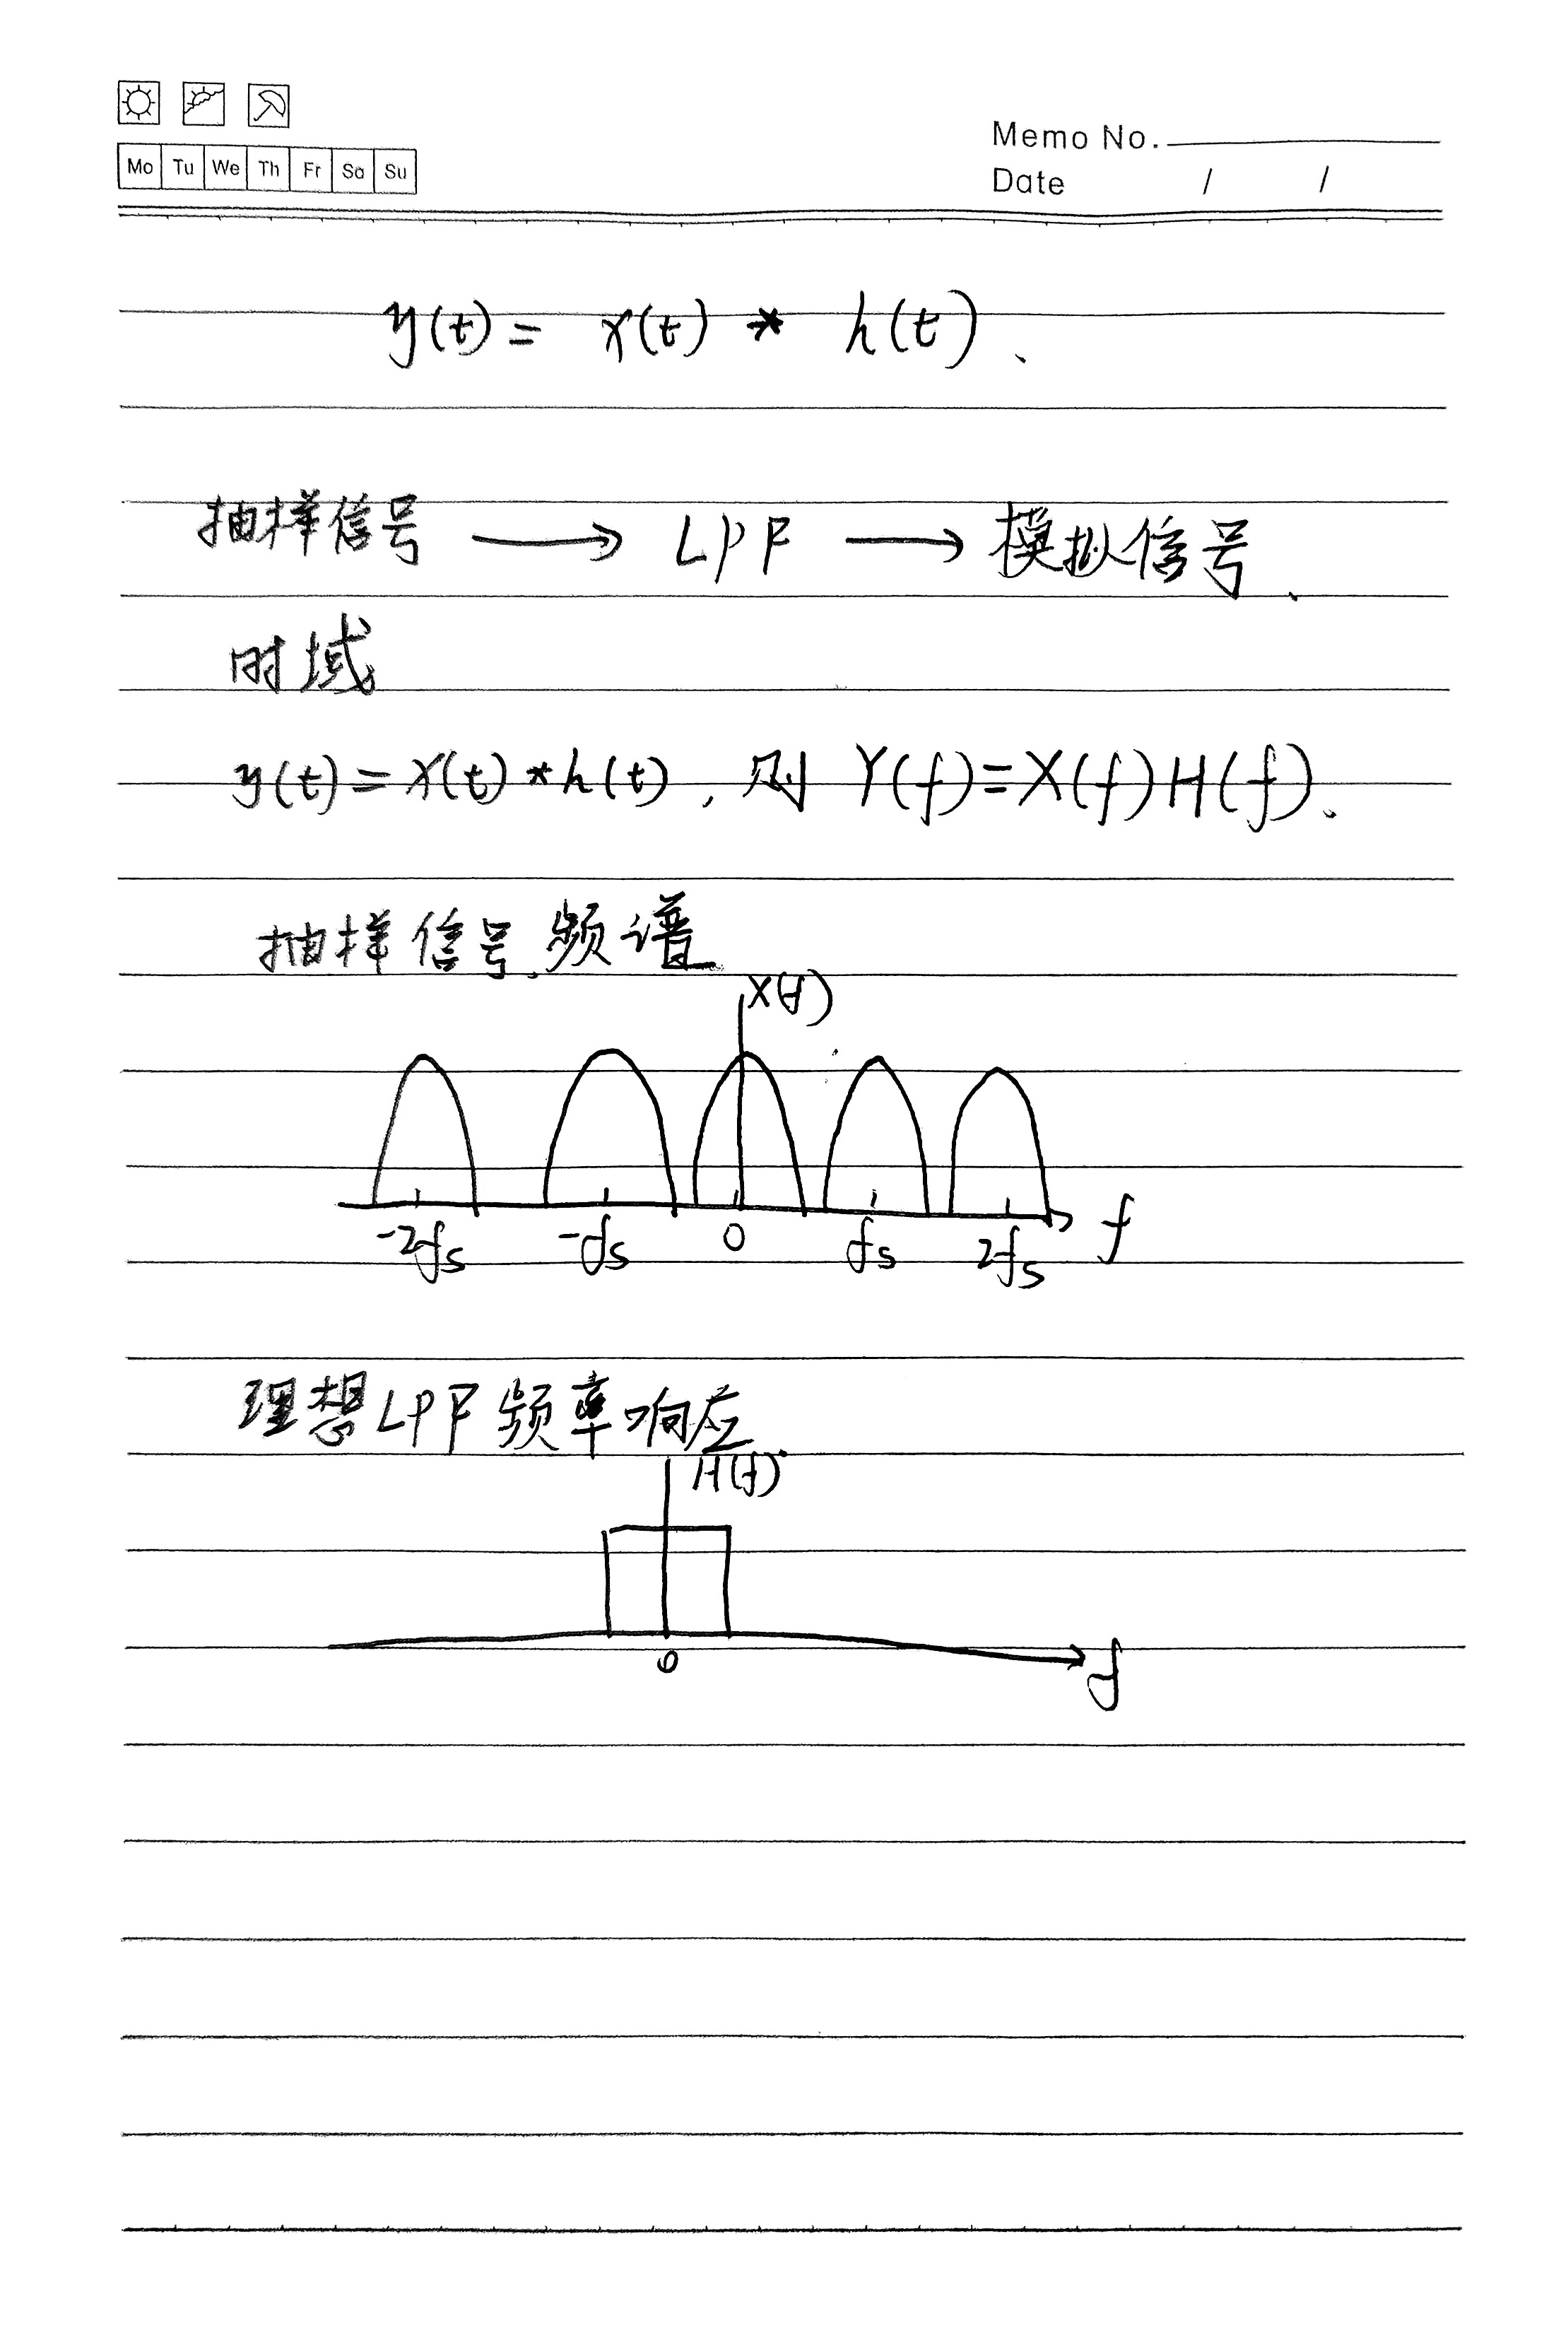 Memo No.
Mo Tu We Th Fr Sa Su
Date / /
y(t) = x(t) * h(t).
抽样信号 → LPF → 模拟信号.
时域
y(t) = x(t) * h(t), 则 Y(f) = X(f) H(f).
抽样信号.频谱
X(f)
-2fs -fs 0 fs 2fs f
理想LPF频率响应.
H(f)
0 f